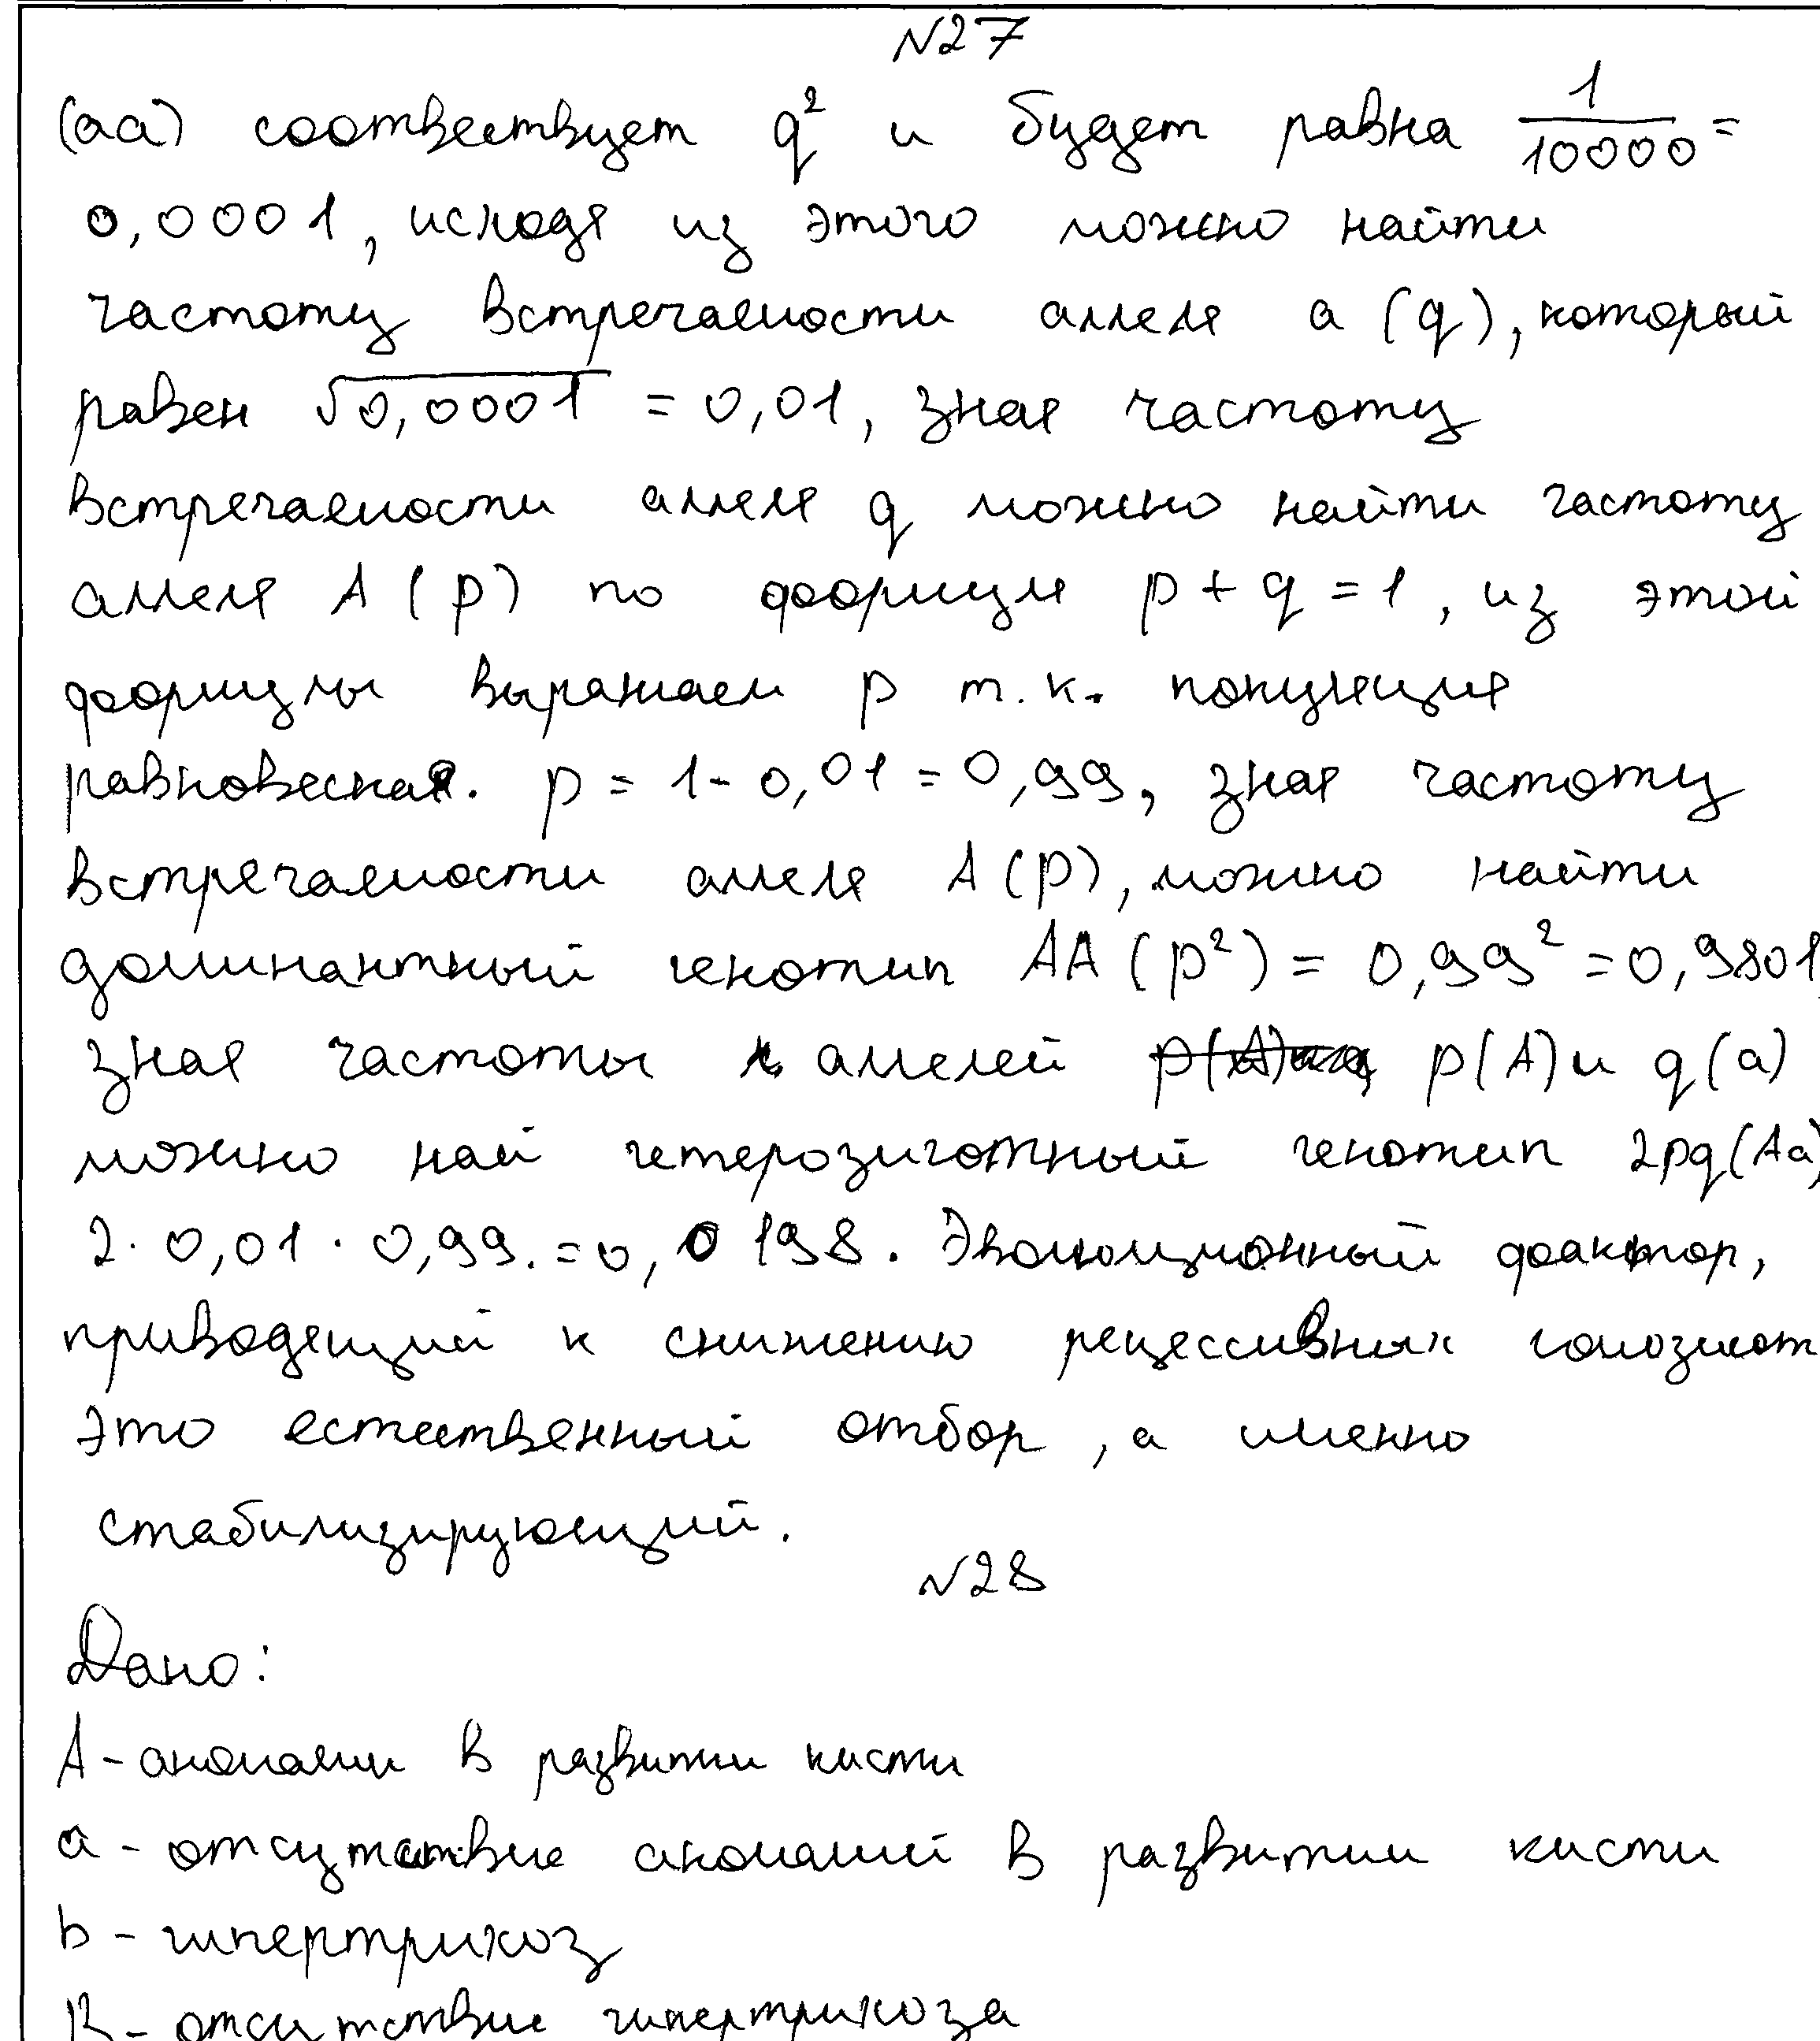 №27
(аа) соотвествует q² и будет равна 1/10000 =
0,0001, исходя из этого можно найти
частоту встречаемости аллеля а (q), который
равен √0,0001 = 0,01, зная частоту
встречаемости аллеля q можно найти частоту
аллеля А (p) по формуле p + q = 1, из этой
формулы выражаем p т.к. популяция
равновесная. p = 1 - 0,01 = 0,99, зная частоту
встречаемости аллеля А (p), можно найти
доминантный генотип АА (p²) = 0,99² = 0,9801,
зная частоты аллелей p(А) и q(а)
можно най гетерозиготный генотип 2pq(Аа)
2 · 0,01 · 0,99. = 0,0198. Эволюционный фактор,
приводящий к снижению рецессивных гомозигот
это естественный отбор, а именно
стабилизирующий.
№28
Дано:
А - аномалии в развитии кисти
а - отсутствие аномалий в развитии кисти
b - гипертрихоз
В - отсутствие гипертрихоза